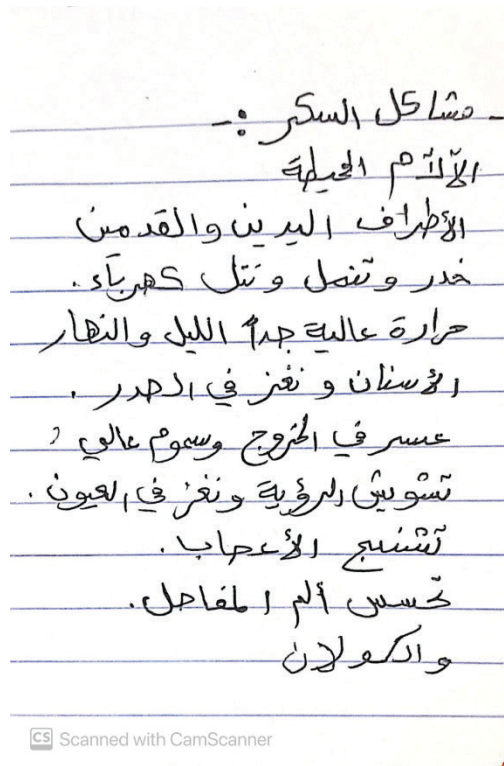 - مشاكل السكر :-
الآلآم المحيطة
الأطراف اليدين والقدمين
خدر وتنمل ونتل كهربآء .
حرارة عالية جداً الليل والنهار
الأسنان و نغز في الصدر .
عسر في الخروج وسموم عالي ,
تشويش الرؤية ونغز في العيون .
تشنج الأعصاب .
تحسس ألم المفاصل .
والكولان
CS Scanned with CamScanner